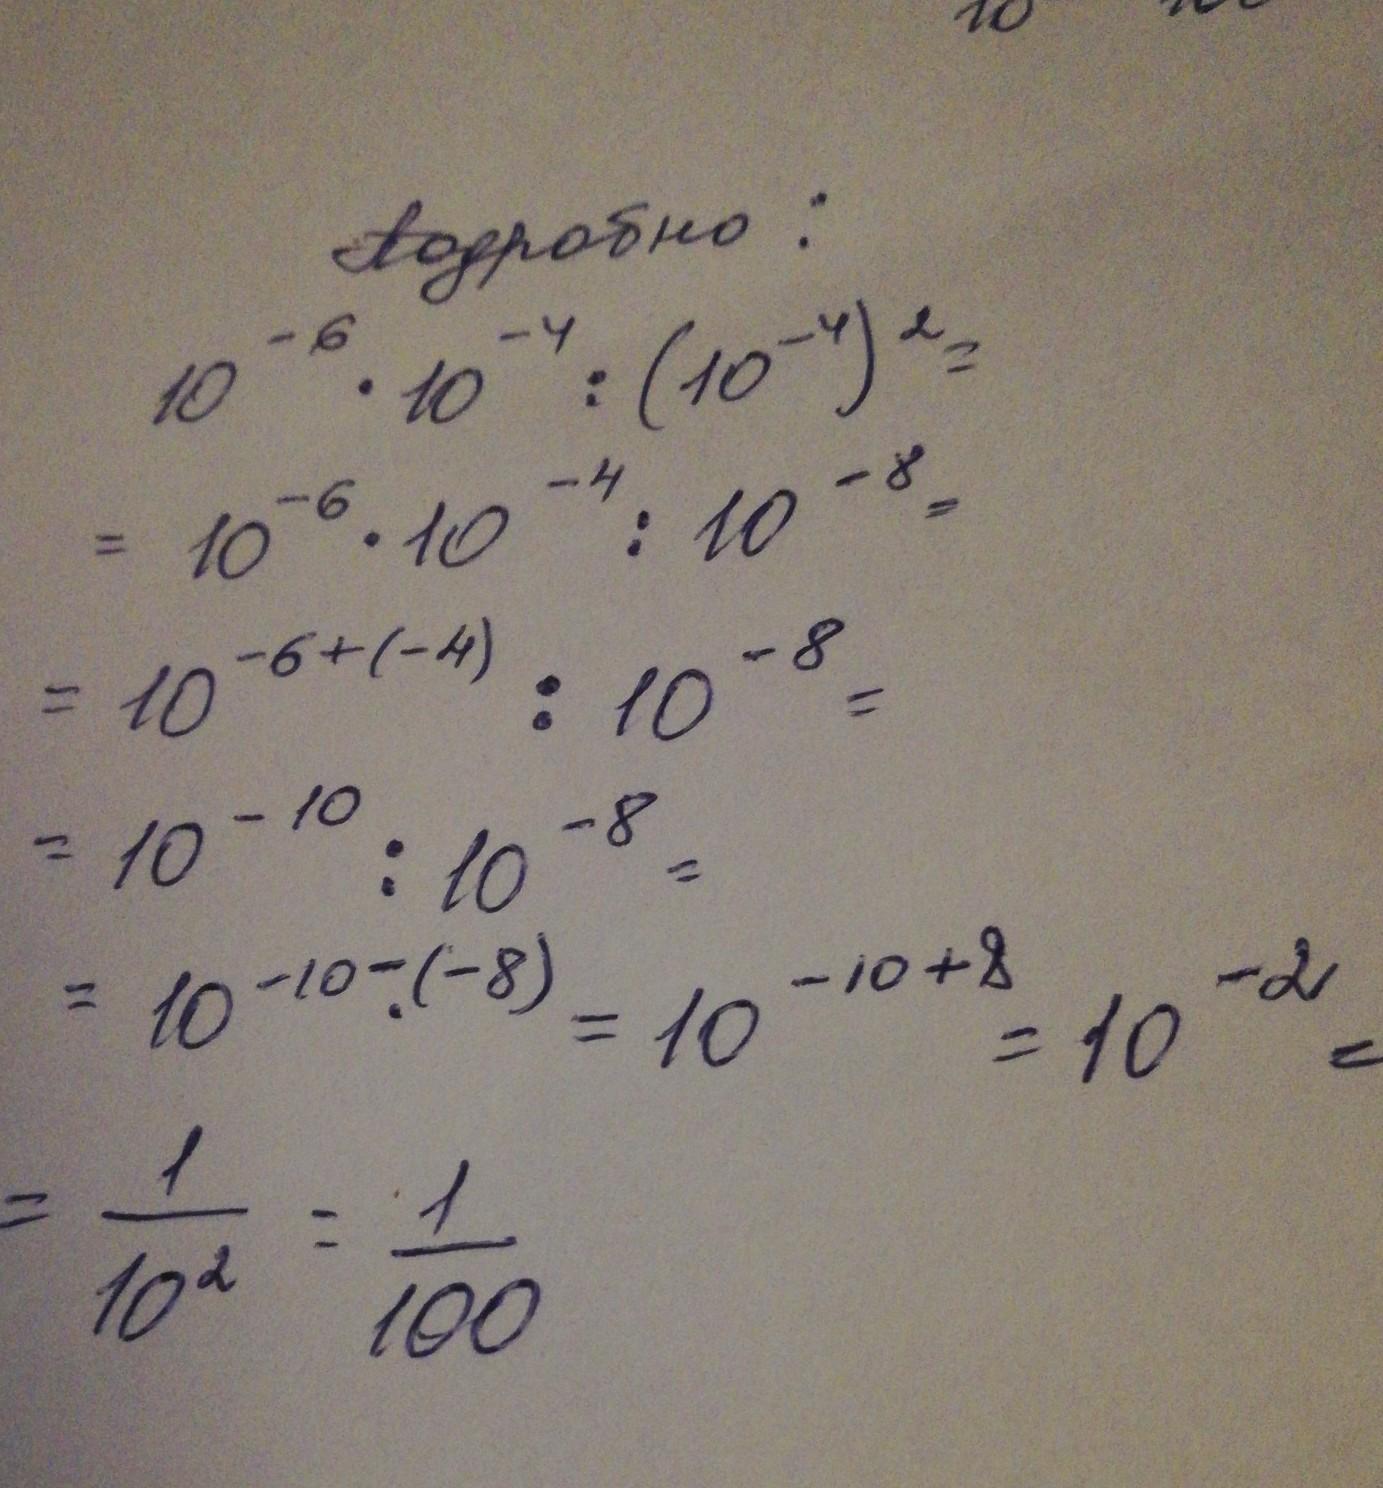 Подробно:
10⁻⁶ · 10⁻⁴ : (10⁻⁴)² =
= 10⁻⁶ · 10⁻⁴ : 10⁻⁸ =
= 10⁻⁶⁺⁽⁻⁴⁾ : 10⁻⁸ =
= 10⁻¹⁰ : 10⁻⁸ =
= 10⁻¹⁰⁻⁽⁻⁸⁾ = 10⁻¹⁰⁺⁸ = 10⁻² =
= 1/10² = 1/100